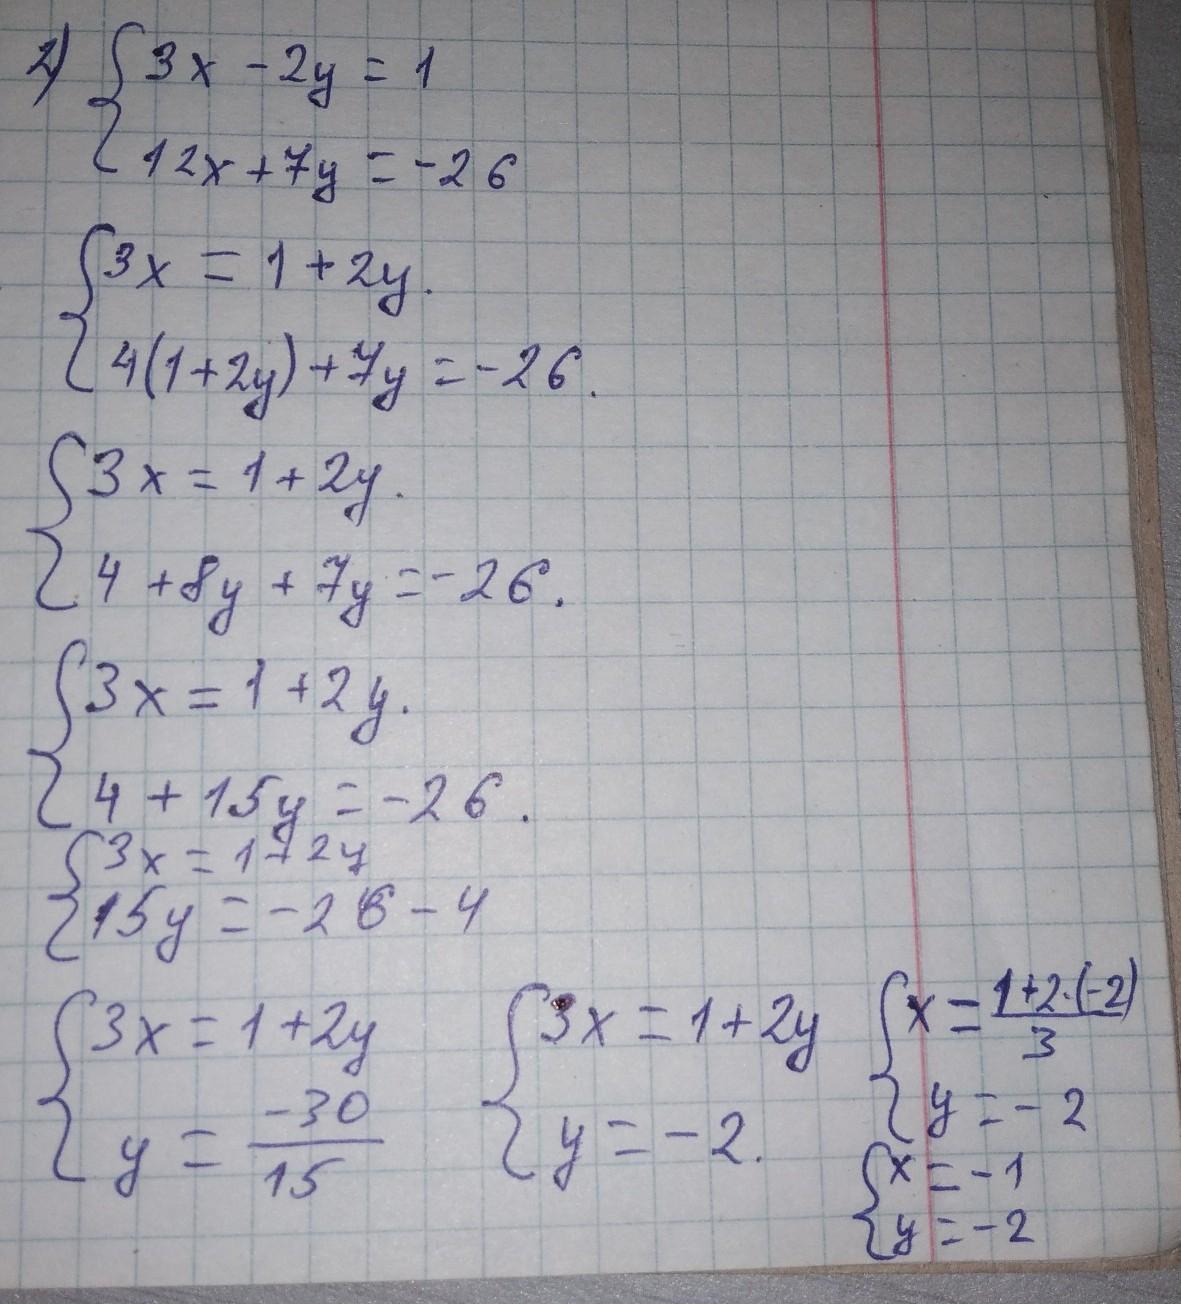 2) { 3x - 2y = 1
12x + 7y = -26
{ 3x = 1 + 2y.
4(1 + 2y) + 7y = -26.
{ 3x = 1 + 2y.
4 + 8y + 7y = -26.
{ 3x = 1 + 2y.
4 + 15y = -26.
{ 3x = 1 + 2y
15y = -26 - 4
{ 3x = 1 + 2y
y = -30/15
{ 3x = 1 + 2y
y = -2.
{ x = 1+2·(-2)/3
y = -2
{ x = -1
y = -2